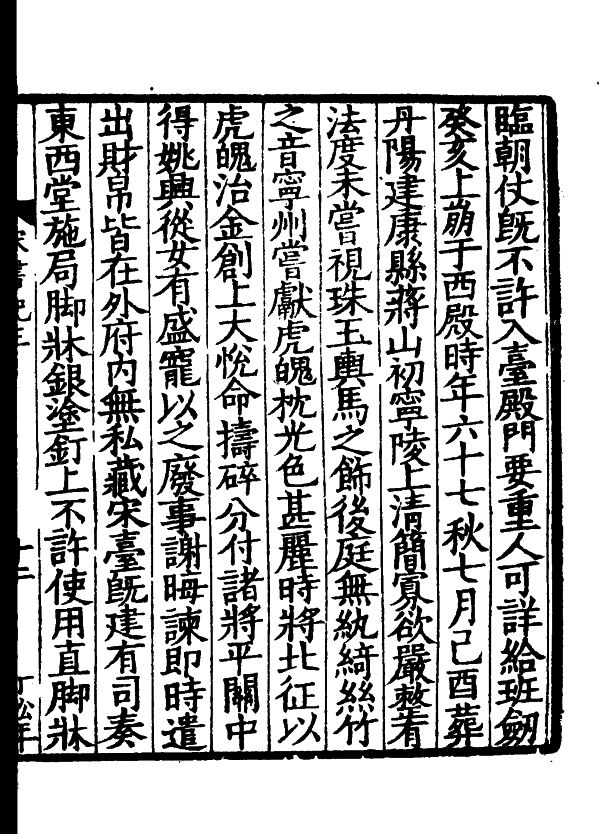 臨朝仗旣不許入臺殿門要重人可詳給班劔
癸亥上崩于西殿時年六十七秋七月己酉葬
丹陽建康縣蔣山初寧陵上清簡寡欲嚴整有
法度未嘗視珠玉輿馬之飾後庭無紈綺絲竹
之音寧州嘗獻虎魄枕光色甚麗時將北征以
虎魄治金創上大恱命擣碎分付諸將平關中
得姚興從女有盛寵以之廢事謝晦諫即時遣
出財帛皆在外府内無私藏宋臺旣建有司奏
東西堂施局脚牀銀塗釘上不許使用直脚牀